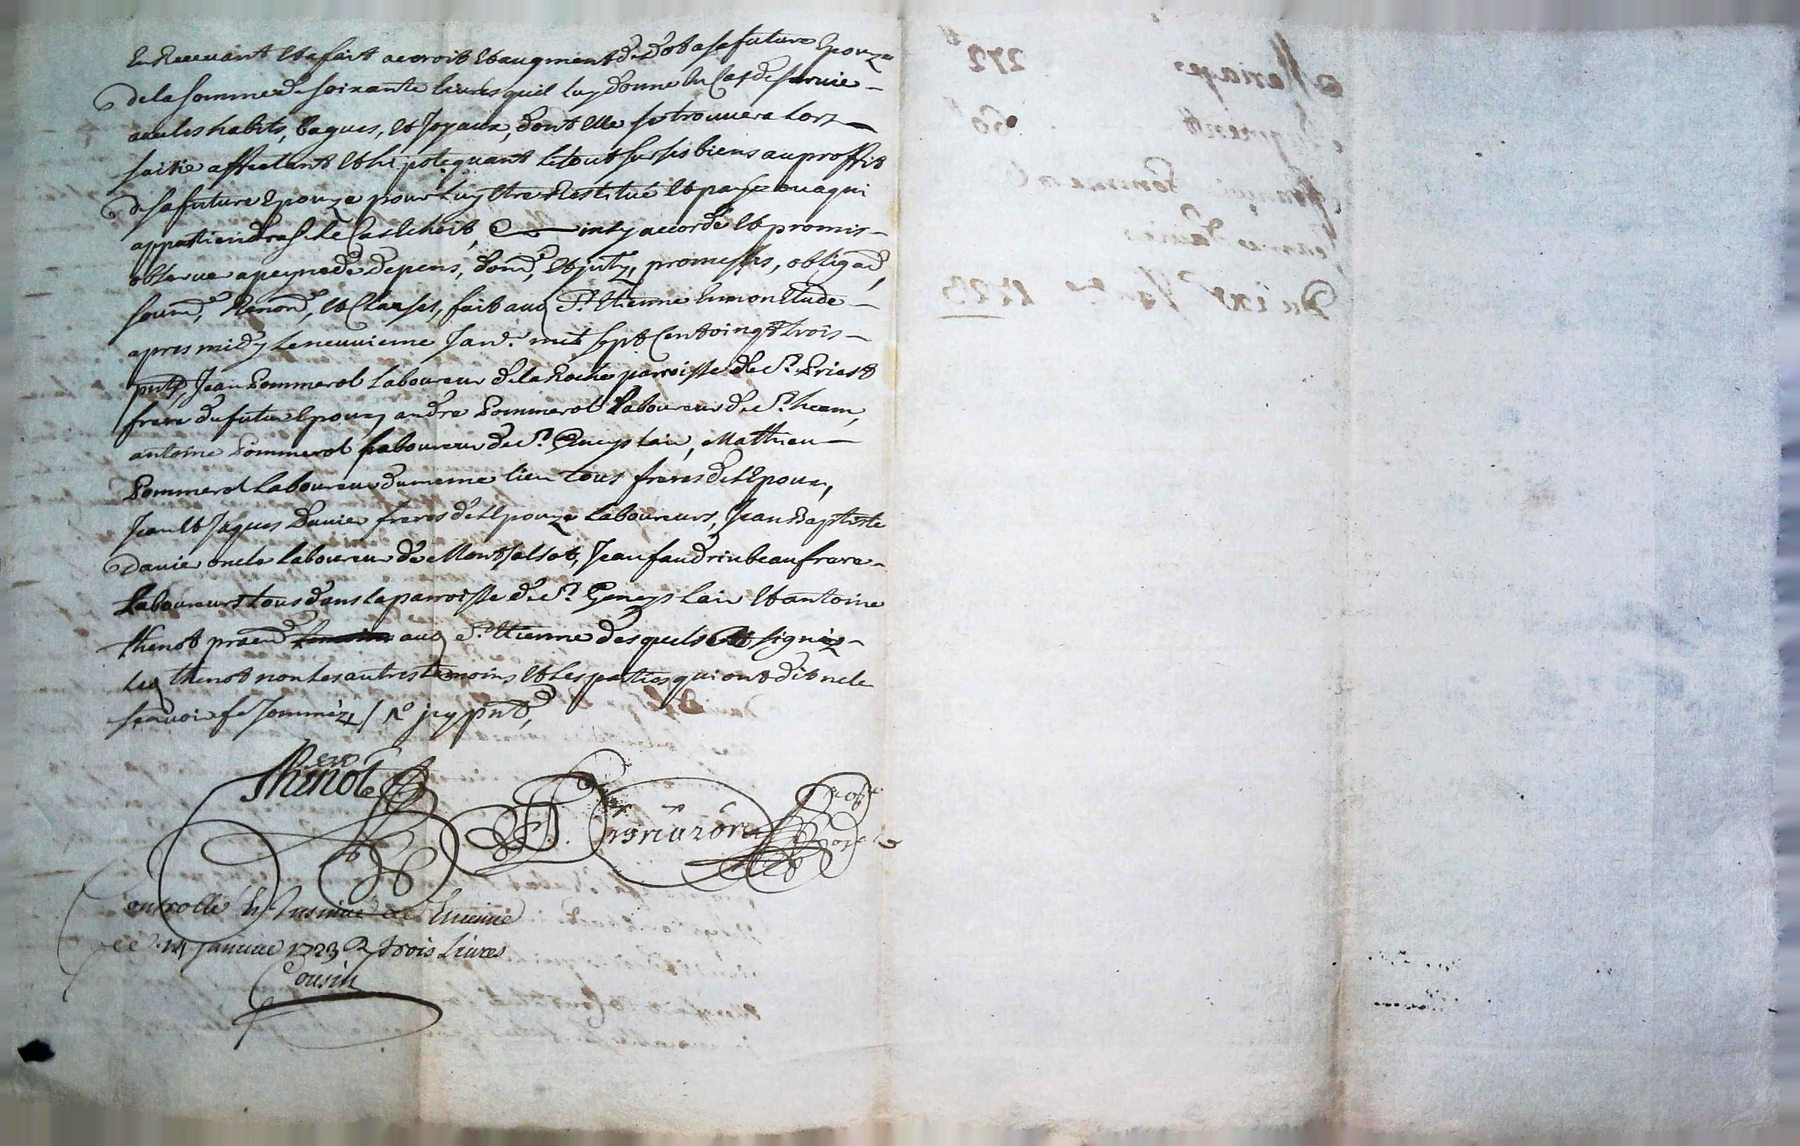 En Recevant Et a fait accroit Et augment de dot a sa future Epouze
de la somme de soixante livres quil luy donne En Cas de survie
avec les habits, bagues, Et Joyaux, dont Elle se trouvera lors
saisie affectant Et hipotequant le tout sur ses biens au proffit
de sa future Epouze pour luy Etre Restitué Et payé ou a qui
appartiendra le Cas Echeit, ainsy accordé Et promis
observer a peyne de depens, dom, Et jnts, promesses, obligaõ,
soumõ, Renonõ, Et Clauses, fait aud St. Etienne En mon Etude
apres midy le neuvieme Janv. mil sept Cent vingt trois
pnts, Jean Pommerol laboureur de la Roche parroisse de St. Priest
frere du futur Epoux, andré Pommerol laboureur de St. heam,
antoine Pommerol laboureur de St. Geneys lair, Mathieu
Pommerol laboureur du meme lieu tous freres de l'Epoux,
Jean Et Jaques Davier freres de l'Epouze laboureurs, Jean Baptiste
Davier oncle laboureur de Montsalsot, Jean faudrin beaufrere
laboureurs tous dans la parroisse de St. Geneys lair Et antoine
thenot pratid aud St. Etienne desquels signéz
led thenot non les autres temoins Et les parties qui ont dit ne le
scavoir de ce Somméz
Thenot
Controllé Et Insinué a St Etienne
ce 14 janvier 1723 R trois Livres
Cousin
Mariage 272tt
Augment 60tt
françois Pommerol
Jeanne Davier
Du ixe Janv. 1723